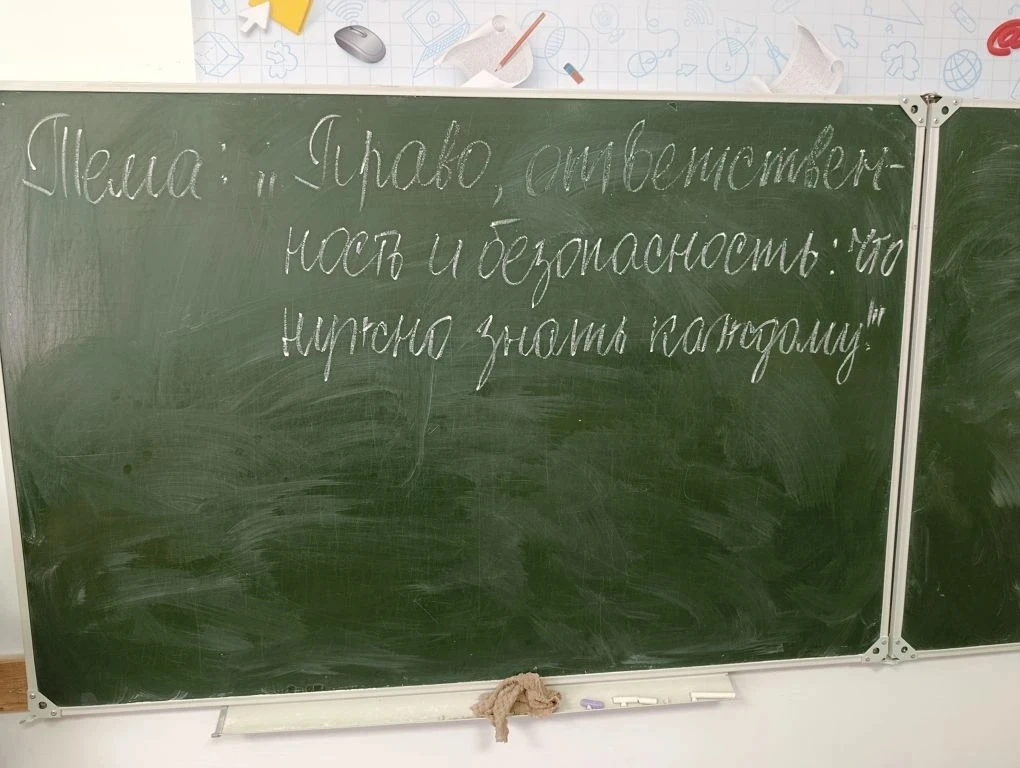 Тема: „Право, ответствен-
ность и безопасность: что
нужно знать каждому"